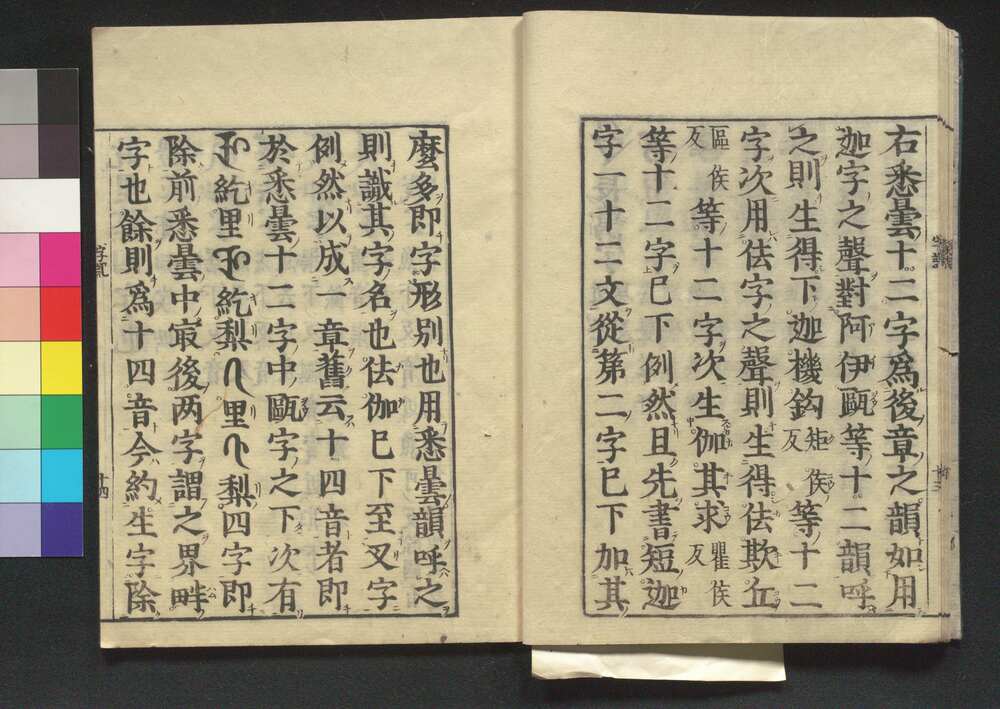 右悉曇十二字為後章之韻如用
迦字之聲對阿伊甌等十二韻呼
之則生得下迦機鈎矩侯反等十二
字次用佉字之聲則生得佉欺丘
區侯反等十二字次生伽其求瞿侯反
等十二字已下例然且先書短迦
字一十二文從第二字已下加其
麼多即字形別也用悉曇韻呼之
則識其字名也佉伽已下至叉字
例然以成一章舊云十四音者即
於悉曇十二字中甌字之下次有
紇里紇梨里梨四字即
除前悉曇中㝡後两字謂之界畔
字也餘則為十四音今約生字除